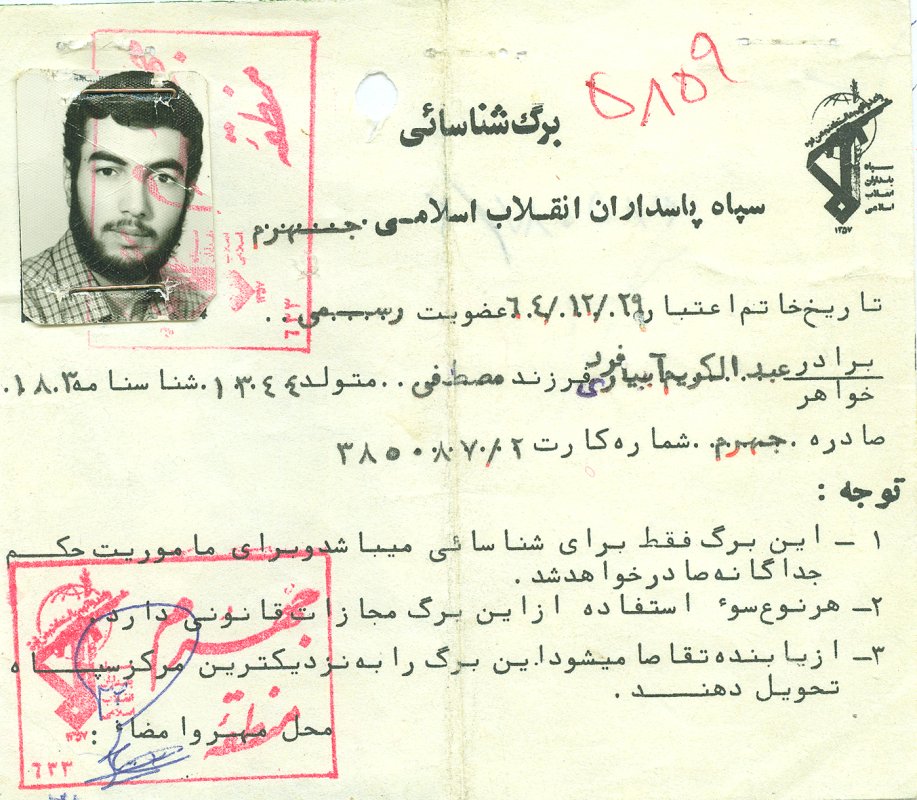 ۵۸۵۹
برگ شناسائی
سپاه پاسداران انقلاب اسلامی جهرم
سپاه پاسداران انقلاب اسلامی
۱۳۵۷
تاریخ خاتم اعتبار ۶۴/۱۲/۲۹ عضویت رسمی ..
برادر
خواهر
عبدالکریم آبیاری فرد فرزند مصطفی .. متولد ۱۳۴۴. شناسنامه ۱۸۰۳.
صادره . جهرم .. شماره کارت ۳۸۵۰۸۷۰/۲
توجه :
۱ – این برگ فقط برای شناسائی میباشد وبرای ماموریت حکم
جداگانه صادر خواهد شد .
۲– هر نوع سوء استفاده از این برگ مجازات قانونی دارد.
۳– از یابنده تقاضا میشود این برگ را به نزدیکترین مرکز سپاه
تحویل دهند .
محل مهر و امضاء :
جهرم
منطقه
۱۳۵۷
۶۳۳
منطقه
۱۳۵۷
۶۳۳